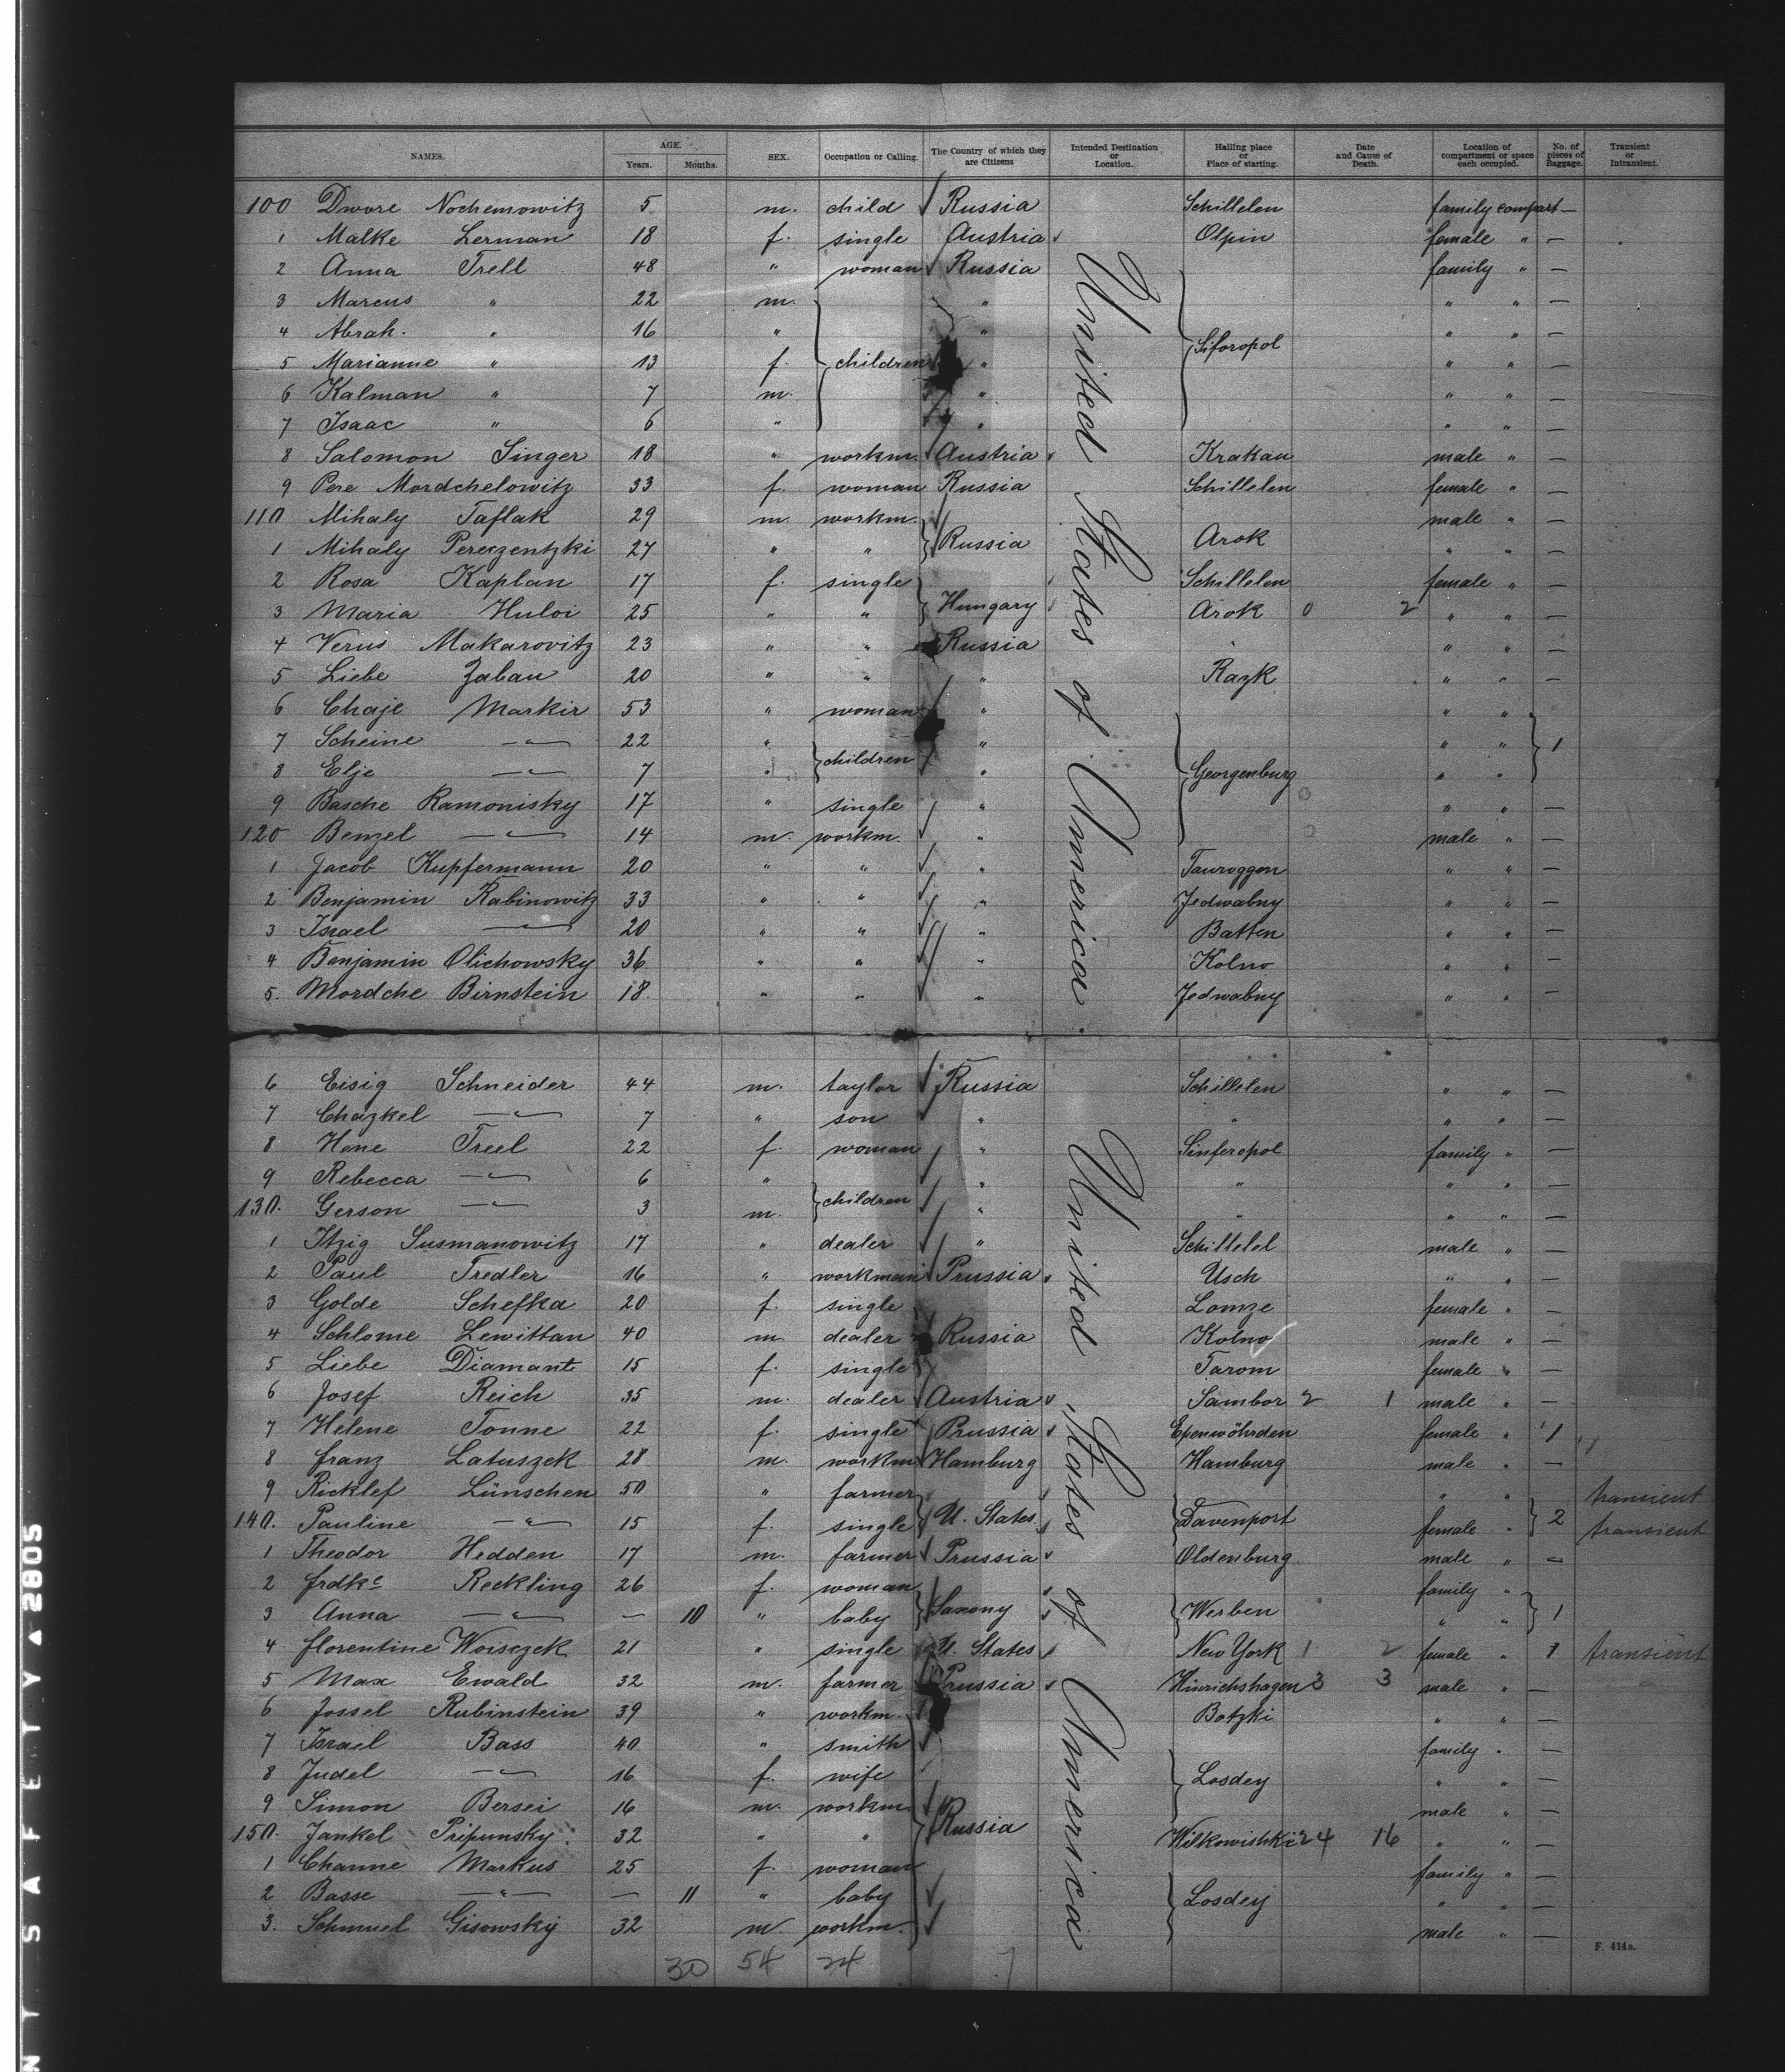 NAMES. AGE. Years. Months. SEX. Occupation or Calling. The Country of which they are Citizens Intended Destination or Location. Hailing place or Place of starting. Date and Cause of Death. Location of compartment or space each occupied. No. of pieces of Baggage. Transient or Intransient.
100 Dwore Nochemowitz 5 m. child Russia Schillelen family compart —
1 Malke Lerman 18 f. single Austria Olpin female " —
2 Anna Trell 48 " woman Russia family " —
3 Marcus " 22 m. " " " —
4 Abrah. " 16 " " " " —
5 Marianne " 13 f. children " Siforopol " " —
6 Kalman " 7 m. " " " —
7 Isaac " 6 " " " " —
8 Salomon Singer 18 " workm. Austria Krakau male " —
9 Pere Mordchelowitz 33 f. woman Russia Schillelen female " —
110 Mihaly Taflak 29 m. workm. male " —
1 Mihaly Pereczentzki 27 " " Russia Arok " " —
2 Rosa Kaplan 17 f. single Schillelen female " —
3 Maria Huloi 25 " " Hungary Arok 0 2 " " —
4 Verus Makarovitz 23 " " Russia " " " —
5 Liebe Zabau 20 " " " Razk " " —
6 Chaje Markir 53 " woman " " "
7 Scheine —"— 22 " " " " 1
8 Elje —"— 7 " children " Georgenburg " "
9 Basche Ramonisky 17 " single " " " —
120 Benzel —"— 14 m. workm. " male " —
1 Jacob Kupfermann 20 " " " Tauroggen " " —
2 Benjamin Rabinowitz 33 " " " Jedwabny " " —
3 Israel —"— 20 " " " Batten " " —
4 Benjamin Olichowsky 36 " " " Kolno " " —
5. Mordche Birnstein 18. " " " Jedwabny " " —
United States of America.
6 Eisig Schneider 44 m. taylor Russia Schillelen " " —
7 Chazkel —"— 7 " son " " " " —
8 Hane Treel 22 f. woman " Sinferopol family " —
9 Rebecca —"— 6 " " " " " —
130. Gerson —"— 3 m. children " " " " —
1 Itzig Susmanowitz 17 " dealer " Schillelel male " —
2 Paul Tredler 16 " workman Prussia Usch " " —
3 Golde Schefka 20 f. single Lomze female " —
4 Schlome Lewittan 40 m. dealer Russia Kolno male " —
5 Liebe Diamant 15 f. single Tarom female " —
6 Josef Reich 35 m. dealer Austria Sambor 2 1 male " —
7 Helene Tonne 22 f. single Prussia Epenwöhrden female " 1
8 Franz Latuszek 28 m. workm Hamburg Hamburg male " —
9 Ricklef Lünschen 50 " farmer " " transient
140. Pauline —"— 15 f. single U. States Davenport female " 2 transient
1 Theodor Hedden 17 m. farmer Prussia Oldenburg male " —
2 Frdke Reckling 26 f. woman family "
3 Anna —"— — 10 " baby Saxony Werben " " 1
4 Florentine Woisczek 21 " single U. States New York 1 2 female " 1 transient
5 Max Ewald 32 m. farmer Prussia Hinrichshagen 3 3 male " —
6 Jossel Rubinstein 39 " workm. Botzki " " —
7 Israel Bass 40 " smith family " —
8 Judel —"— 16 f. wife Losdey " " —
9 Simon Bersei 16 m. workm. male " —
150. Jankel Pripunsky. 32 " " Russia Wilkowishki 24 16 " " —
1 Channe Markus 25 f. woman family " —
2 Basse —"— — 11 " baby Losdey " " —
3. Schmuel Gisowsky 32 m. workm. male " —
United States of America
30 54 24 7
F. 414a.
N T S A F E T Y ▲ 2805